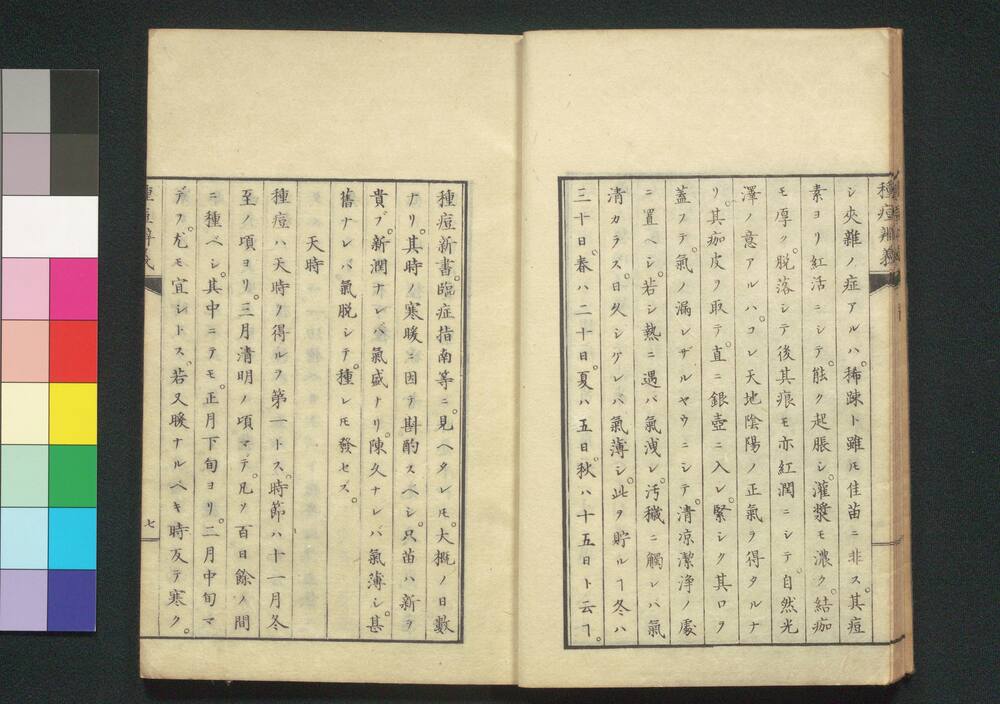 シ夾雜ノ症アルハ。稀踈ト雖ㇳモ佳苗ニ非ス。其痘
素ヨリ紅活ニシテ。能ク起脹シ。灌漿モ濃ク。結痂
モ厚ク。脱落シテ後其痕モ亦紅潤ニシテ。自然光
澤ノ意アルハ。コレ天地陰陽ノ正氣ヲ得タルナ
リ。其痂皮ヲ取テ。直ニ銀壺ニ入レ。緊シク其口ヲ
蓋フテ。氣ノ漏レザルヤウニシテ。清凉潔浄ノ處
ニ置ヘシ。若シ熱ニ遇バ氣洩レ。汚穢ニ觸レハ氣
清カラス。日久シケレバ氣薄シ。此ヲ貯ルヿ冬ハ
三十日。春ハ二十日。夏ハ五日。秋ハ十五日ト云ヿ。
種痘新書。臨症指南等ニ。見ヘタレㇳモ。大概ノ日數
ナリ。其時ノ寒暖ニ因テ斟酌スベシ。只苗ハ新ヲ
貴ブ。新潤ナレハ氣盛ナリ。陳久ナレバ氣薄シ。甚
舊ナレバ氣脱シテ。種レㇳモ發セズ。
天時
種痘ハ天時ヲ得ルヲ第一トス。時節ハ十一月冬
至ノ頃ヨリ。三月清明ノ頃マデ。凡ソ百日餘ノ間
ニ種ベシ。其中ニテモ。正月下旬ヨリ。二月中旬マ
デヲ。尤モ宜シトス。若又暖ナルベキ時反テ寒ク。
七